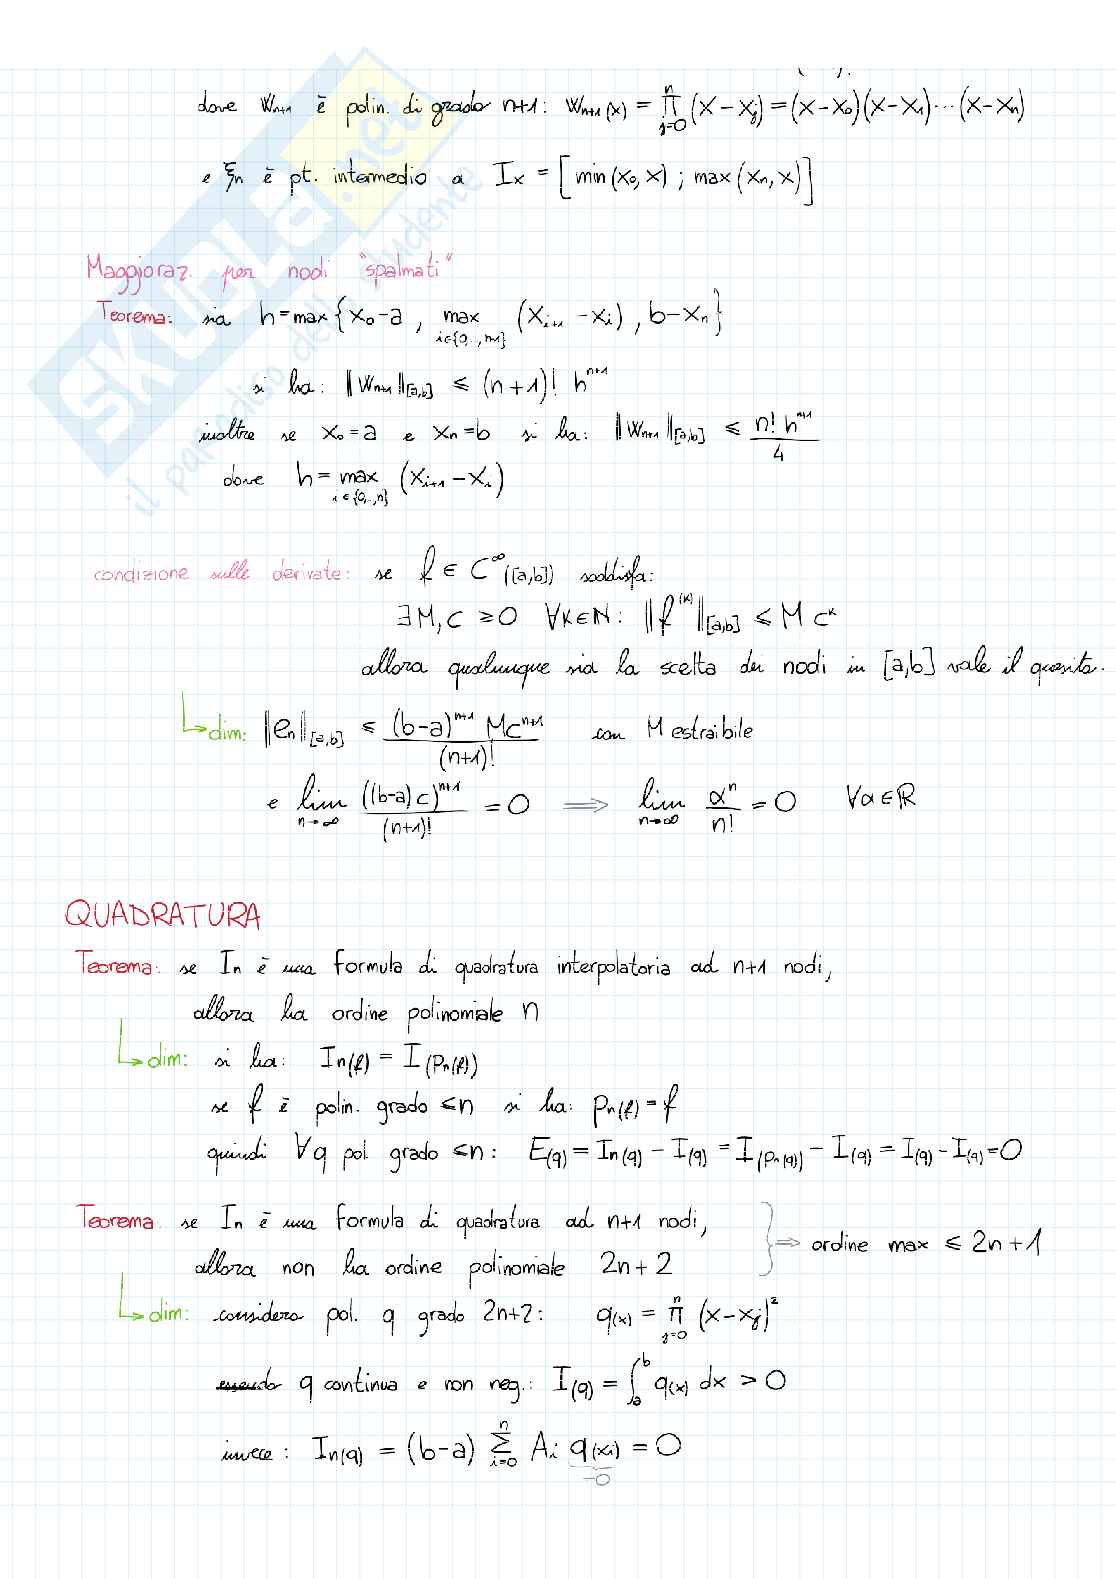 dove Wn+1 è polin. di grado n+1: Wn+1(x) = ∏_{j=0}^{n} (x-xj) = (x-x0)(x-x1)...(x-xn)
e ξn è pt. intermedio a Ix = [min(x0,x) ; max(xn,x)]
Maggioraz. per nodi "spalmati"
Teorema: sia h = max{x0-a , max_{i∈{0,..,n-1}} (xi+1 - xi) , b-xn}
si ha: ‖Wn+1‖[a,b] ≤ (n+1)! h^{n+1}
inoltre se x0=a e xn=b si ha: ‖Wn+1‖[a,b] ≤ n! h^{n+1} / 4
dove h = max_{i∈{0,..,n}} (xi+1 - xi)
condizione sulle derivate: se f ∈ C^∞([a,b]) soddisfa:
∃M,C ≥0 ∀K∈N: ‖f^{(K)}‖[a,b] ≤ M C^K
allora qualunque sia la scelta dei nodi in [a,b] vale il quesito.
dim: ‖en‖[a,b] ≤ (b-a)^{n+1} MC^{n+1} / (n+1)! con M estraibile
e lim_{n→∞} ((b-a)c)^{n+1} / (n+1)! = 0 ⟹ lim_{n→∞} α^n / n! = 0 ∀α∈R
QUADRATURA
Teorema: se In è una formula di quadratura interpolatoria ad n+1 nodi,
allora ha ordine polinomiale n
dim: si ha: In(f) = I(pn(f))
se f è polin. grado ≤n si ha: pn(f) = f
quindi ∀q pol. grado ≤n: E(q) = In(q) - I(q) = I(pn(q)) - I(q) = I(q) - I(q) = 0
Teorema: se In è una formula di quadratura ad n+1 nodi,
allora non ha ordine polinomiale 2n+2
⇒ ordine max ≤ 2n+1
dim: considero pol. q grado 2n+2: q(x) = ∏_{j=0}^{n} (x-xj)^2
essendo q continua e non neg.: I(q) = ∫_a^b q(x) dx > 0
invece: In(q) = (b-a) ∑_{i=0}^{n} Ai q(xi) = 0
=0
SKUOLA.net
il paradiso dello studente